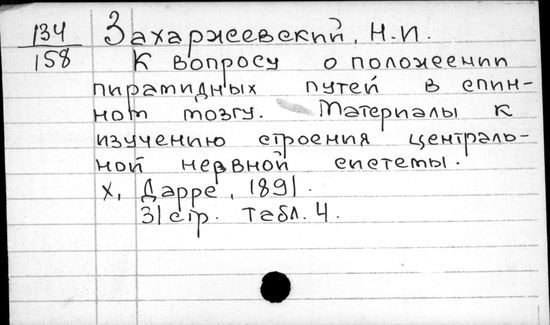 134 Захаржевский, Н.И.
158 К вопросу о положении
пирамидных путей в спин-
ном мозгу. Материалы к
изучению строения централь-
ной нервной системы.
Х., Дарре, 1891.
31 стр. табл. 4.